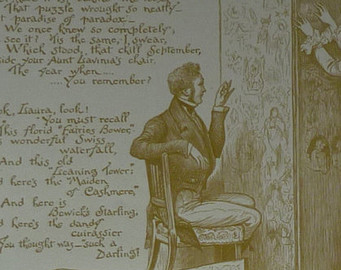 That puzzle wrought so neatly—
t paradise of paradox—
We once knew so completely;
see it? 'Tis the same, I swear,
Which stood, that chill September,
side your Aunt Lavinia's chair
The year when....
....You remember?
ok, Laura, look!
You must recall
This florid "Fairies' Bower,"
s wonderful Swiss
waterfall,
And this old
"Leaning Tower;"
nd here's the "Maiden
of Cashmere,"
And here is
Bewick's Starling,
nd here's the dandy
cuirassier
You thought was—"such a
Darling!"